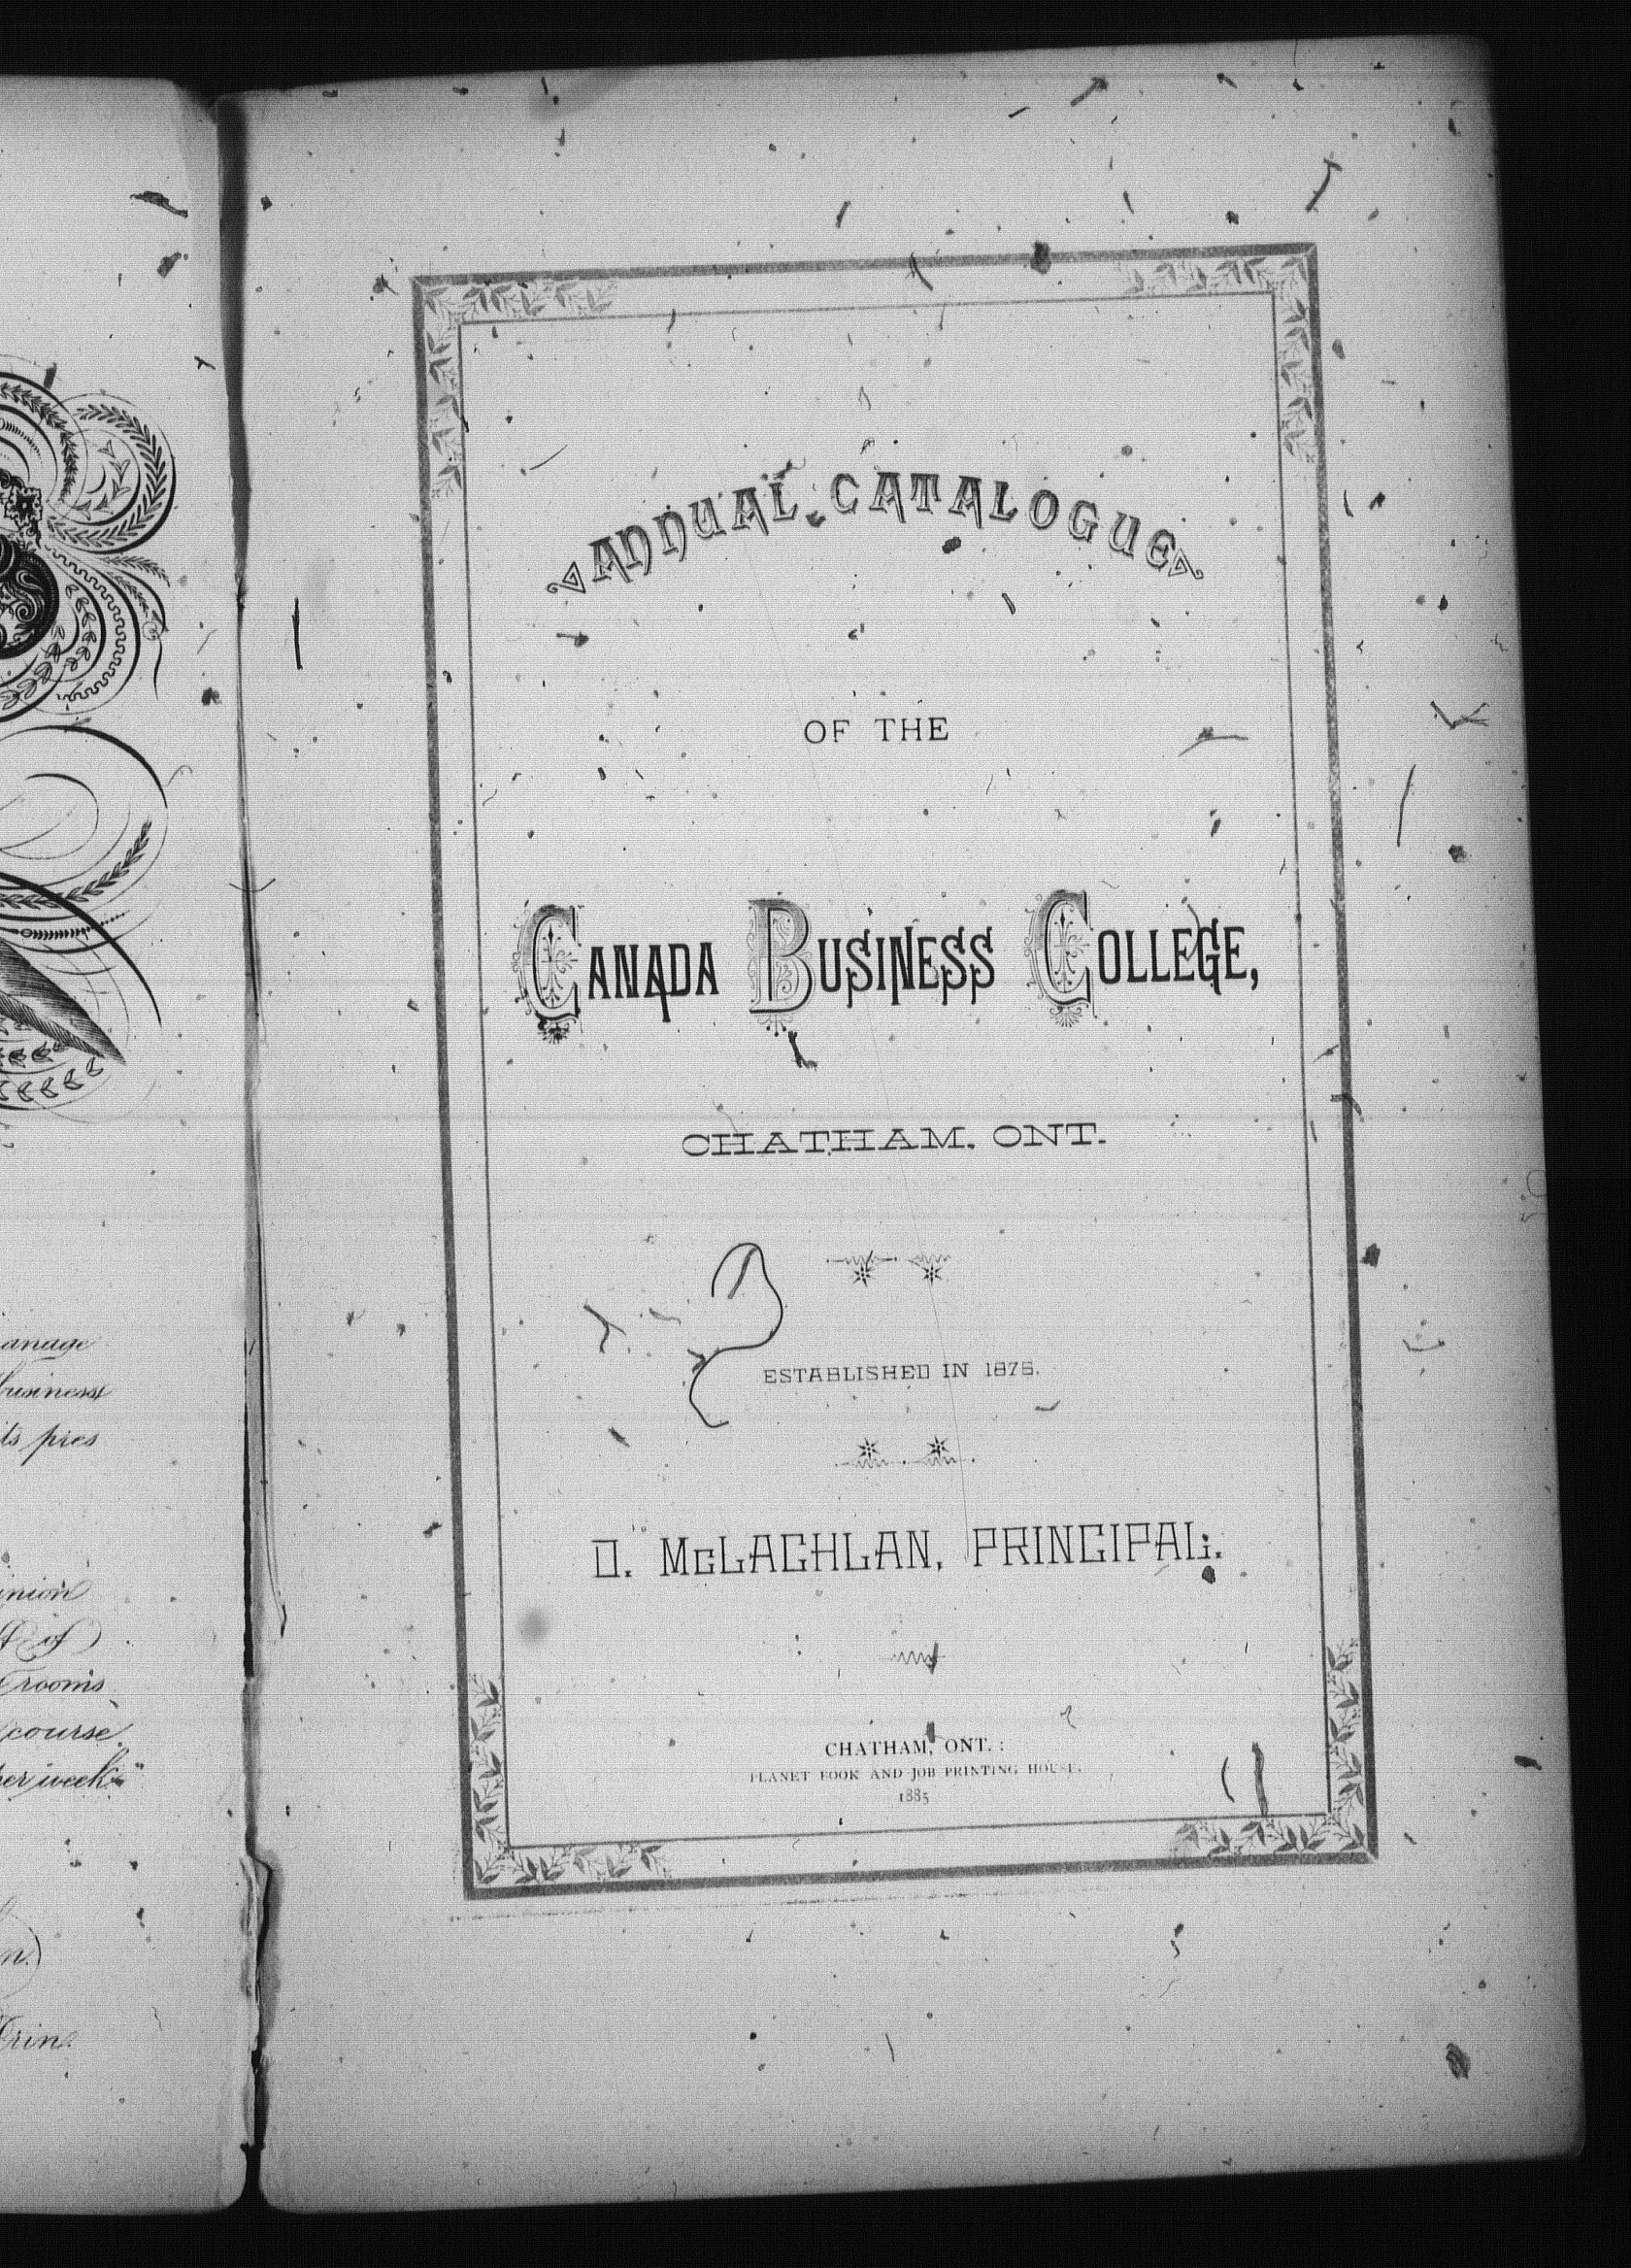 anage
business
its pres
inion
of
rooms
course.
per week."
n.)
Erin.
ANNUAL CATALOGUE
OF THE
CANADA BUSINESS COLLEGE,
CHATHAM, ONT.
ESTABLISHED IN 1875.
D. McLACHLAN, PRINCIPAL.
CHATHAM, ONT. :
PLANET BOOK AND JOB PRINTING HOUSE.
1885